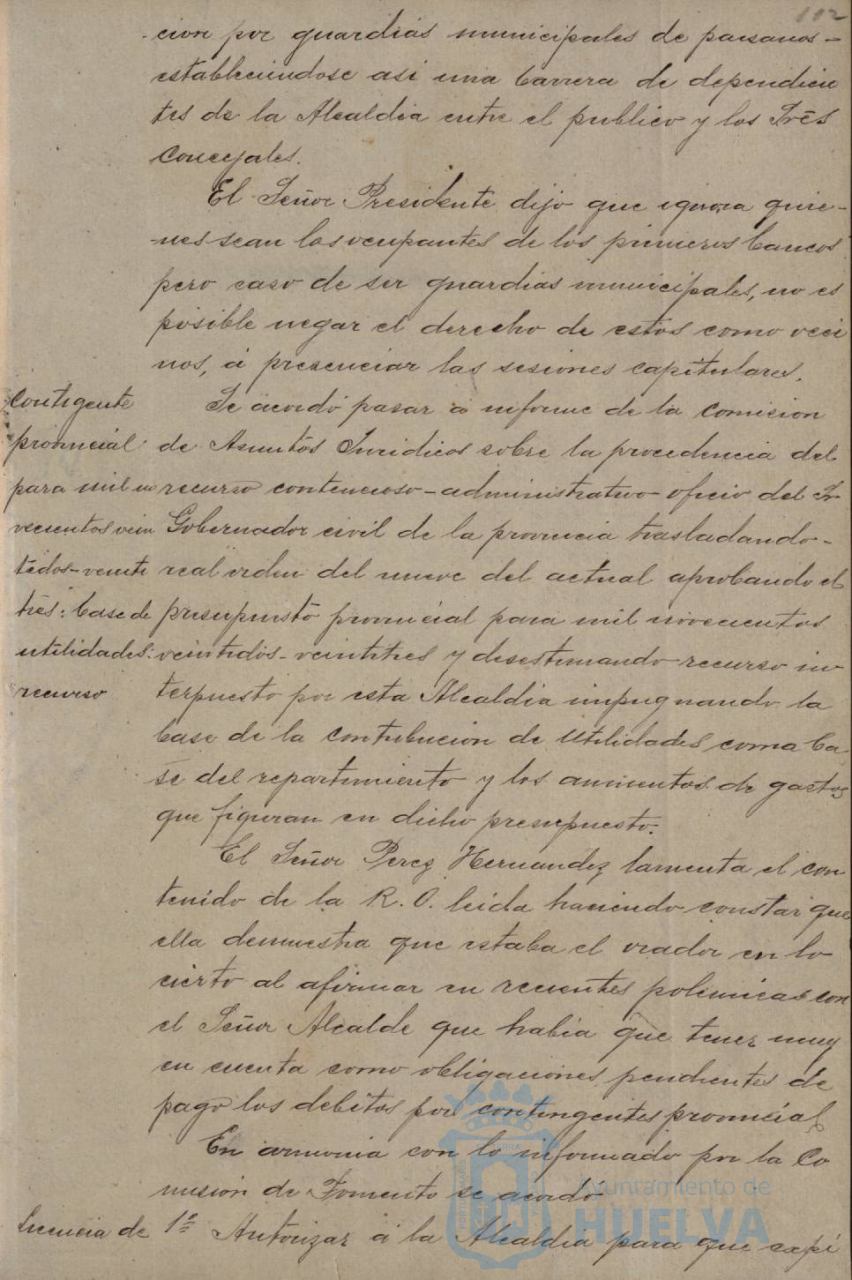 112
cion por guardias municipales de paisanos-
estableciendose asi una barrera de dependien
tes de la Alcaldia entre el publico y los Tres
concejales.
El Señor Presidente dijo que ignora quie-
nes sean los ocupantes de los primeros bancos
pero caso de ser guardias municipales, no es
posible negar el derecho de estos como veci
nos, á presenciar las sesiones capitulares.
Contigente
provincial
para mil no
vecientos vein
tidos-veinte
tres: base de
utilidades:
recurso
Se acordó pasar á informe de la comision
de Asuntos Juridicos sobre la procedencia del
recurso contencioso-administrativo oficio del
Gobernador civil de la provincia trasladando-
real orden del nueve del actual aprobando el
presupuesto provincial para mil novecientos
veintidos-veintitres y desestimando recurso in
terpuesto por esta Alcaldia impugnando la
base de la contribucion de Utilidades como ba
se del repartimiento y los aumentos de gastos
que figuran en dicho presupuesto.
El Señor Perez Hernandez lamenta el con
tenido de la R. O. leida haciendo constar que
ella demuestra que estaba el orador en lo
cierto al afirmar en recientes polemicas con
el Señor Alcalde que habia que tener muy
en cuenta como obligaciones pendientes de
pago los debitos por contingentes provincial
En armonia con lo informado por la Co
mision de Fomento se acordó
Licencia de
1º Autorizar á la Alcaldia para que expi
Ayuntamiento de
HUELVA